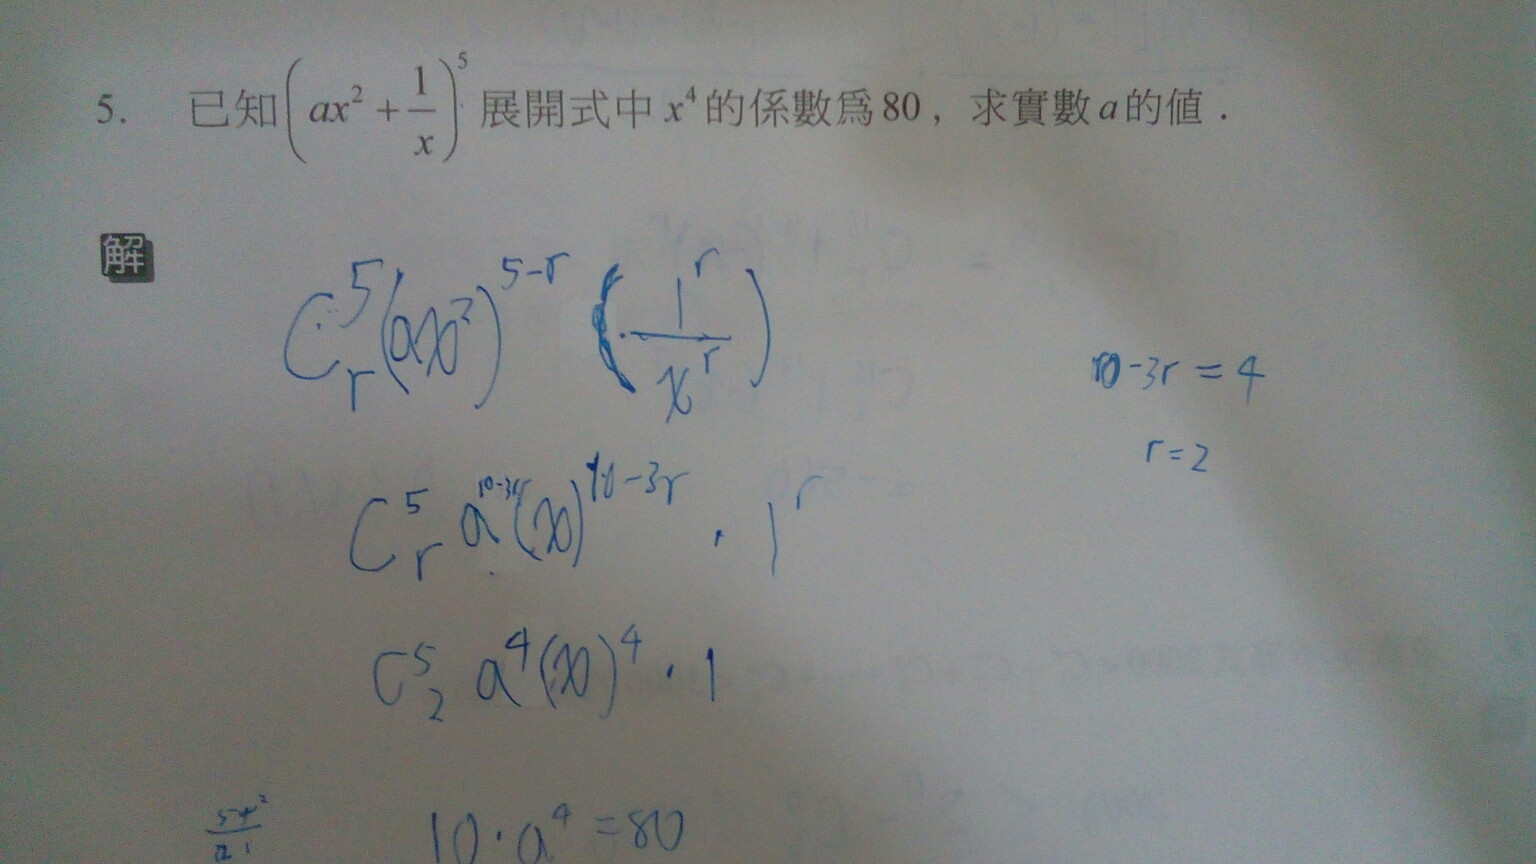 5. 已知(ax²+1/x)⁵展開式中x⁴的係數為80，求實數a的值.
解
C⁵ᵣ(ax²)⁵⁻ʳ(1ʳ/xʳ)
10-3r=4
r=2
C⁵ᵣa¹⁰⁻³ʳ(x)¹⁰⁻³ʳ·1ʳ
C⁵₂a⁴(x)⁴·1
10·a⁴=80